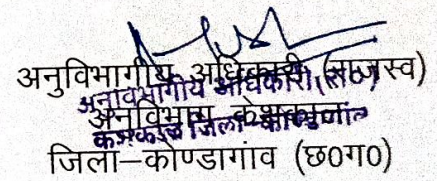 अनुविभागीय अधिकारी (राजस्व)
अनुविभागीय अधिकारी (रा०)
अनुविभाग केशकाल
केशकाल जिला-कोण्डागांव
जिला–कोण्डागांव (छ0ग0)